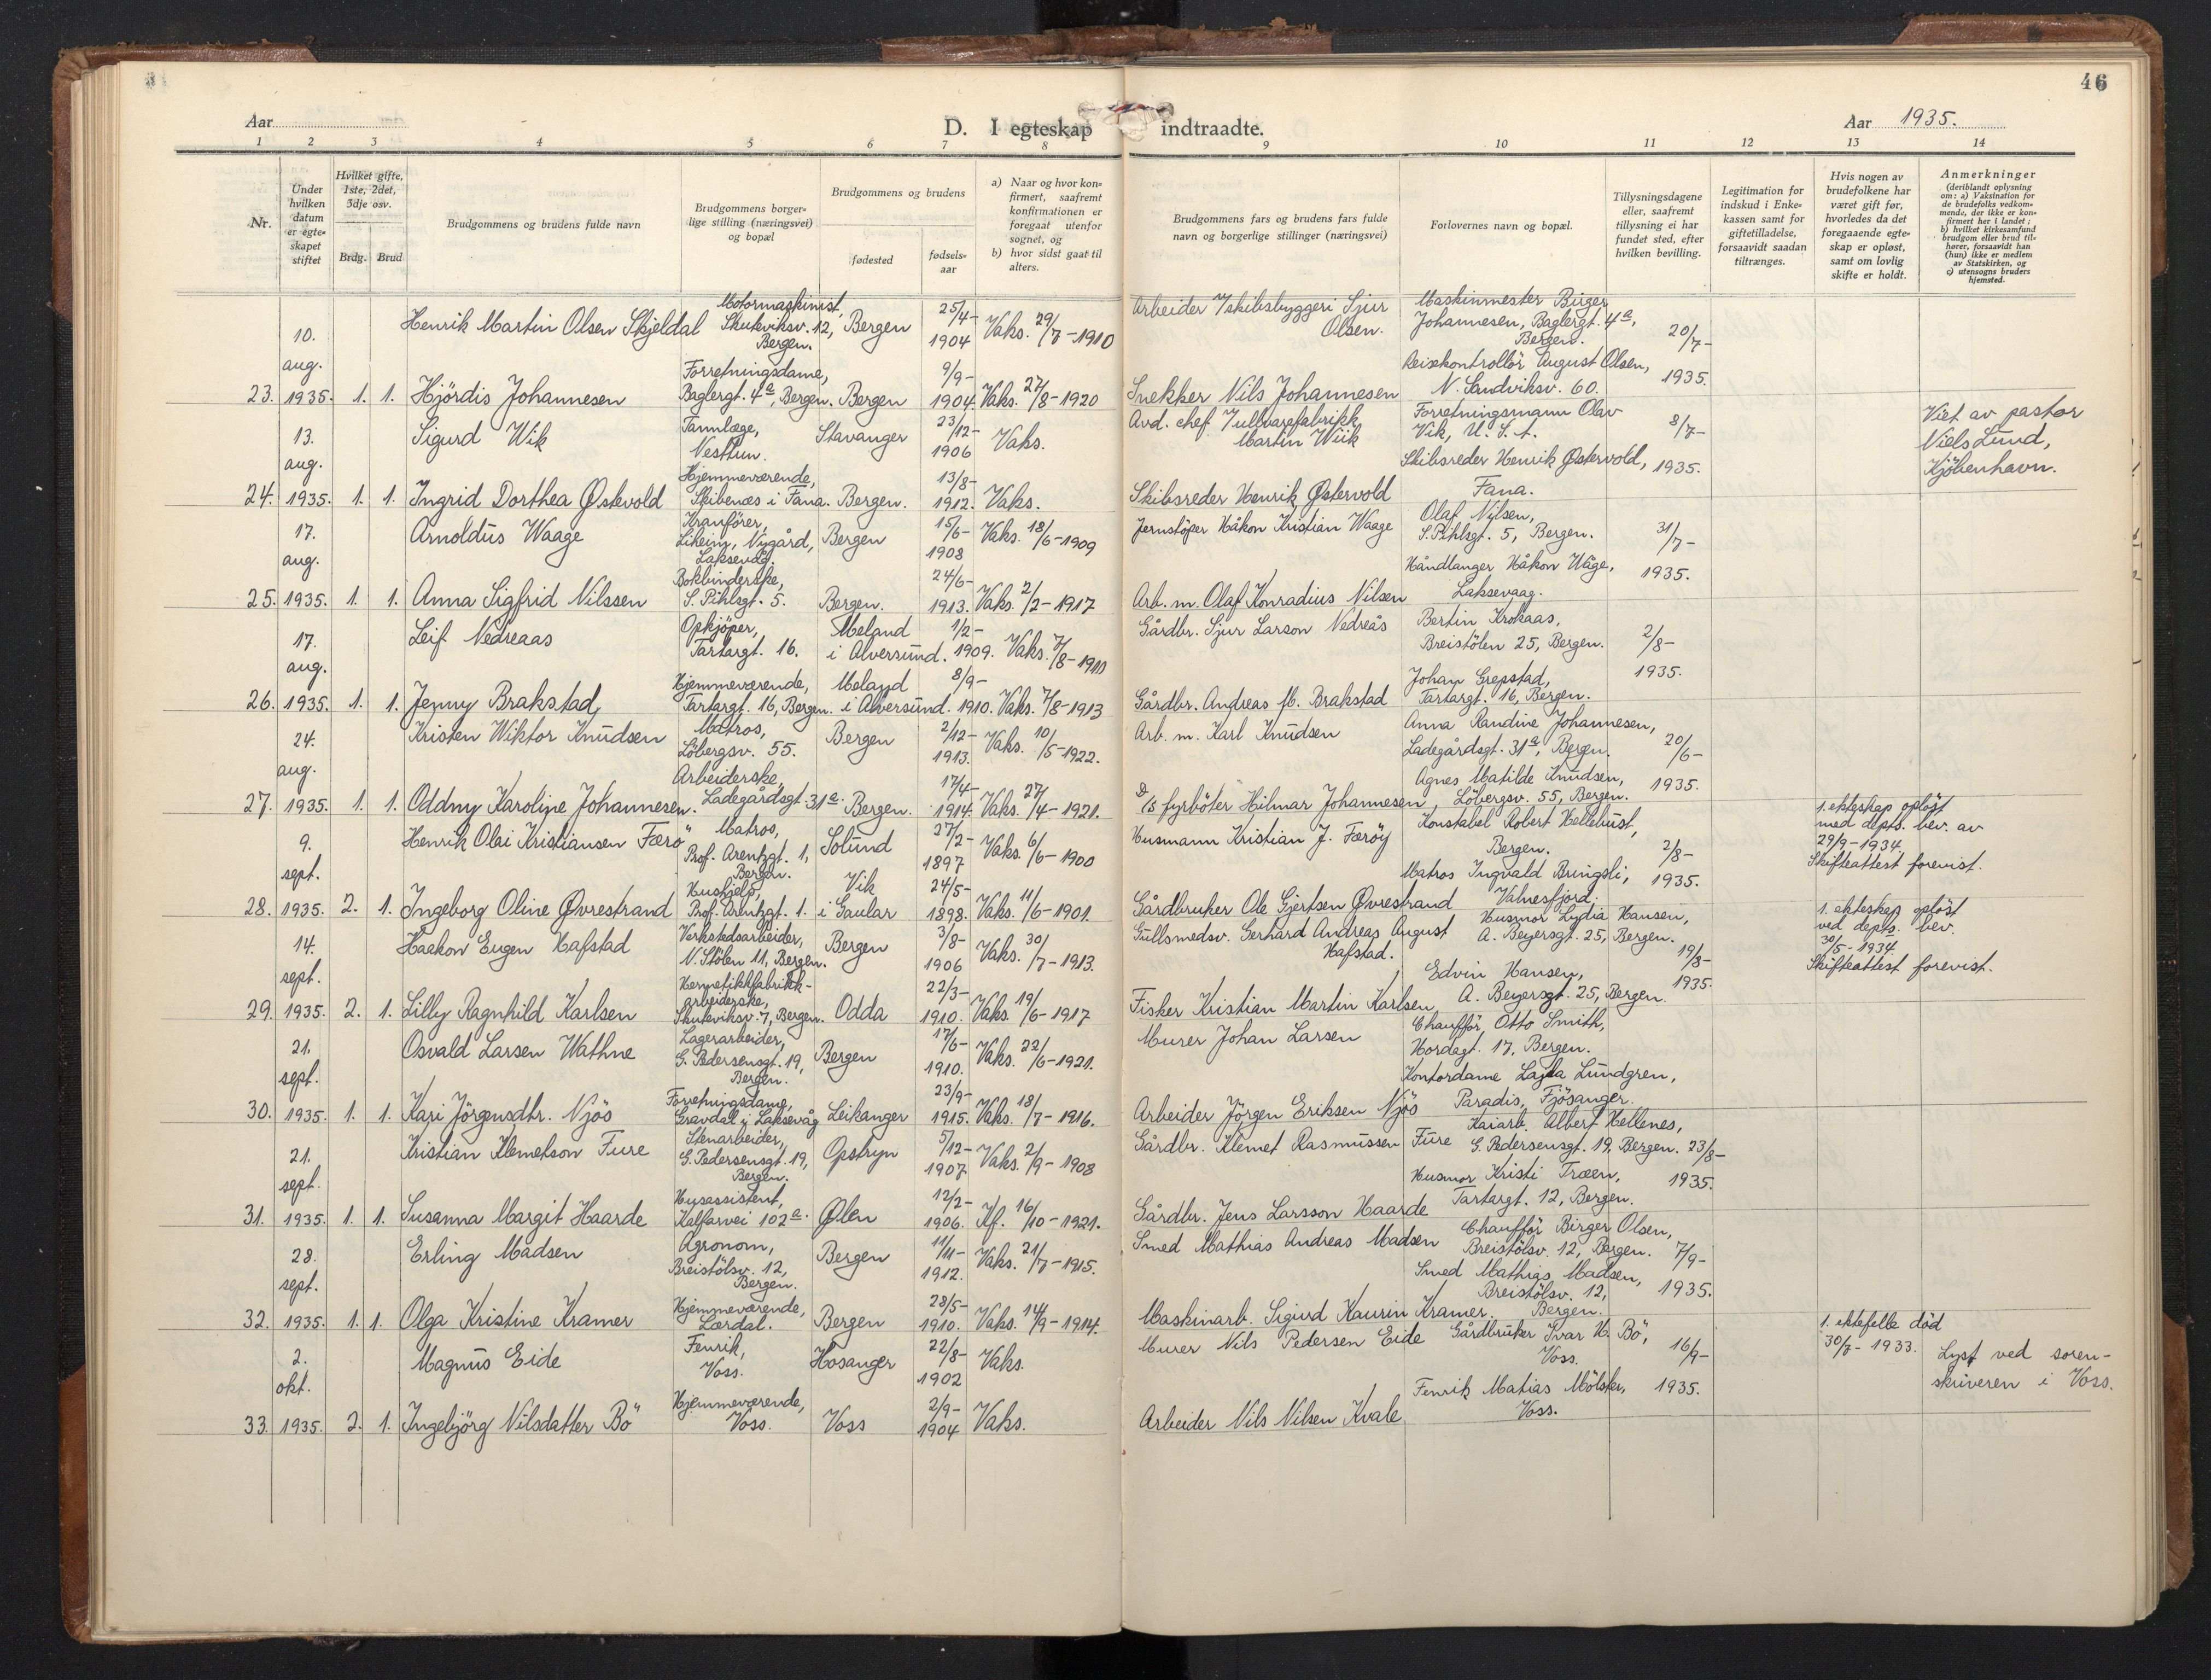 46
Aar
D. I egteskap indtraadte.
Aar 1935.
1 2 3 4 5 6 7 8 9 10 11 12 13 14
Nr.
Under hvilken datum er egteskapet stiftet
Hvilket gifte, 1ste, 2det, 3dje osv.
Brdg. Brud
Brudgommens og brudens fulde navn
Brudgommens borgerlige stilling (næringsvei) og bopæl
Brudgommens og brudens
fødested
fødselsaar
a) Naar og hvor konfirmert, saafremt konfirmationen er foregaat utenfor sognet, og
b) hvor sidst gaat til alters.
Brudgommens fars og brudens fars fulde navn og borgerlige stillinger (næringsvei)
Forlovernes navn og bopæl.
Tillysningsdagene eller, saafremt tillysning ei har fundet sted, efter hvilken bevilling.
Legitimation for indskud i Enkekassen samt for giftetilladelse, forsaavidt saadan tiltrænges.
Hvis nogen av brudefolkene har været gift før, hvorledes da det foregaaende egteskap er opløst, samt om lovlig skifte er holdt.
Anmerkninger
(deriblandt oplysning om: a) Vaksination for de brudefolks vedkommende, der ikke er konfirmert her i landet; b) hvilket kirkesamfund brudgom eller brud tilhører, forsaavidt han (hun) ikke er medlem av Statskirken, og c) utensogns bruders hjemsted.
23. 10. aug. 1935. 1. 1.
Henrik Martin Olsen Skjeldal
Motormaskinist, Skuteviksv. 12, Bergen.
Bergen
25/4- 1904
Vaks. 29/7-1910
Arbeider i skibsbyggeri Sjur Olsen.
Maskinmester Birger Johannesen, Baglergt. 4a, Bergen.
20/7- 1935.
Hjördis Johannesen
Forretningsdame, Baglergt. 4a, Bergen.
Bergen
9/9- 1904.
Vaks. 27/8-1920
Snekker Nils Johannesen
Reisekontrollör August Olsen, N. Sandviksv. 60.
24. 13. aug. 1935. 1. 1.
Sigurd Wik
Tannlæge, Nesttun.
Stavanger
23/12- 1906
Vaks.
Avd. chef i ullvarefabrikk Martin Wiik
Forretningsmann Olav Vik, U. S. A.
8/7- 1935.
Viet av pastor Niels Lund, Kjöbenhavn.
Ingrid Dorthea Østevold
Hjemmeværende, Skibenæs i Fana.
Bergen.
13/8- 1912.
Vaks.
Skibsreder Henrik Østervold
Skibsreder Henrik Østervold, Fana.
25. 17. aug. 1935. 1. 1.
Arnoldus Waage
Kranförer, Likeim, Nygård, Laksevåg.
Bergen
15/6- 1908
Vaks. 18/6-1909
Jernstöper Håkon Kristian Waage
Olaf Nilsen, S. Pihlsgt. 5, Bergen.
31/7- 1935.
Anna Sigfrid Nilssen
Bokbinderske, S. Pihlsgt. 5.
Bergen.
24/6- 1913.
Vaks. 2/2-1917
Arb. m. Olaf Konradius Nilsen
Håndlanger Håkon Wåge, Laksevaag.
26. 17. aug. 1935. 1. 1.
Leif Nedreaas
Opkjöper, Tartargt. 16.
Meland i Alversund.
1/2- 1909.
Vaks. 7/8-1910
Gårdbr. Sjur Larson Nedreås
Bertin Krokaas, Breistölen 25, Bergen.
2/8- 1935.
Jenny Brakstad
Hjemmeværende, Tartargt. 16, Bergen.
Meland i Alversund.
8/9- 1910.
Vaks. 7/8-1913
Gårdbr. Andreas M. Brakstad
Johan Grepstad, Tartargt. 16, Bergen.
27. 24. aug. 1935. 1. 1.
Kristen Wiktor Knudsen
Matros, Löbergsv. 55.
Bergen
2/12- 1913.
Vaks. 10/5-1922.
Arb. m. Karl Knudsen
Anna Randine Johannesen, Ladegårdsgt. 31a, Bergen.
20/6- 1935.
Oddny Karoline Johannesen.
Arbeiderske, Ladegårdsgt. 31a.
Bergen.
17/4- 1914.
Vaks. 27/4-1921.
D/s fyrböter Hilmar Johannesen
Agnes Matilde Knudsen, Löbergsv. 55, Bergen.
28. 9. sept. 1935. 2. 1.
Henrik Olai Kristiansen Færö
Matros, Prof. Arentzgt. 1, Bergen.
Solund
27/2- 1897
Vaks. 6/6-1900
Husmann Kristian J. Færöy
Konstabel Robert Hellebust, Bergen.
2/8- 1935.
1. ekteskap oplöst med depts. bev. av 29/9-1934. Skifteattest forevist.
Ingeborg Oline Øvrestrand
Hushjelp, Prof. Arentzgt. 1.
Vik i Gaular
24/5- 1898.
Vaks. 11/6-1901.
Gårdbruker Ole Gjertsen Øvrestrand
Matros Ingvald Bringsli, Valnesfjord.
29. 14. sept. 1935. 2. 1.
Haakon Eugen Hafstad
Verkstedsarbeider, N. Stölen 11, Bergen.
Bergen
3/8- 1906
Vaks. 30/7-1913.
Gullsmedsv. Gerhard Andreas August Hafstad.
Husmor Lydia Hansen, A. Beyersgt. 25, Bergen.
19/8- 1935.
1. ekteskap oplöst ved depts. bev. 30/5-1934. Skifteattest forevist.
Lilly Ragnhild Karlsen
Hermetikkfabrikk-arbeiderske, Skuteviksv. 7, Bergen.
Odda
22/3- 1910.
Vaks. 19/6-1917
Fisker Kristian Martin Karlsen
Edvin Hansen, A. Beyersgt. 25, Bergen.
30. 21. sept. 1935. 1. 1.
Osvald Larsen Wathne
Lagerarbeider, G. Pedersensgt. 19, Bergen.
Bergen
17/6- 1910.
Vaks. 22/6-1921.
Murer Johan Larsen
Chauffför Otto Smith, Hordagt. 17, Bergen.
Kari Jörgensdtr. Njös
Forretningsdame, Gravdal i Laksevåg
Leikanger
23/9- 1915.
Vaks. 18/7-1916.
Arbeider Jörgen Eriksen Njös
Kontordame Layla Lundgren, Paradis, Fjösanger.
31. 21. sept. 1935. 1. 1.
Kristian Klemetson Fure
Stenarbeider, G. Pedersensgt. 19, Bergen.
Opstryn
5/12- 1907
Vaks. 2/9-1908
Gårdbr. Klemet Rasmussen Fure
Kaiarb. Albert Hellenes, G. Pedersensgt. 19, Bergen.
23/8- 1935.
Susanna Margit Haarde
Husassistent, Kalfarvei 102a.
Ølen
12/2- 1906.
Kf. 16/10-1921.
Gårdbr. Jens Larsson Haarde
Husmor Kristi Træen, Tartargt. 12, Bergen.
32. 28. sept. 1935. 1. 1.
Erling Madsen
Agronom, Breistölsv. 12, Bergen.
Bergen
11/11- 1912.
Vaks. 21/7-1915.
Smed Mathias Andreas Madsen
Chauffför Birger Olsen, Breistölsv. 12, Bergen.
7/9- 1935.
Olga Kristine Kramer
Hjemmeværende, Lærdal.
Bergen
28/5- 1910.
Vaks. 14/9-1914.
Maskinarb. Sigurd Kaurin Kramer.
Smed Mathias Madsen, Breistölsv. 12, Bergen.
33. 2. okt. 1935. 2. 1.
Magnus Eide
Fenrik, Voss.
Hosanger
22/8- 1902
Vaks.
Murer Nils Pedersen Eide
Gårdbruker Ivar H. Bö, Voss.
16/9- 1935.
1. ektefelle död 30/7-1933.
Lyst ved sorenskriveren i Voss.
Ingebjörg Nilsdatter Bö
Hjemmeværende, Voss.
Voss
2/9- 1904
Vaks.
Arbeider Nils Nilsen Kvale
Fenrik Matias Mölster, Voss.